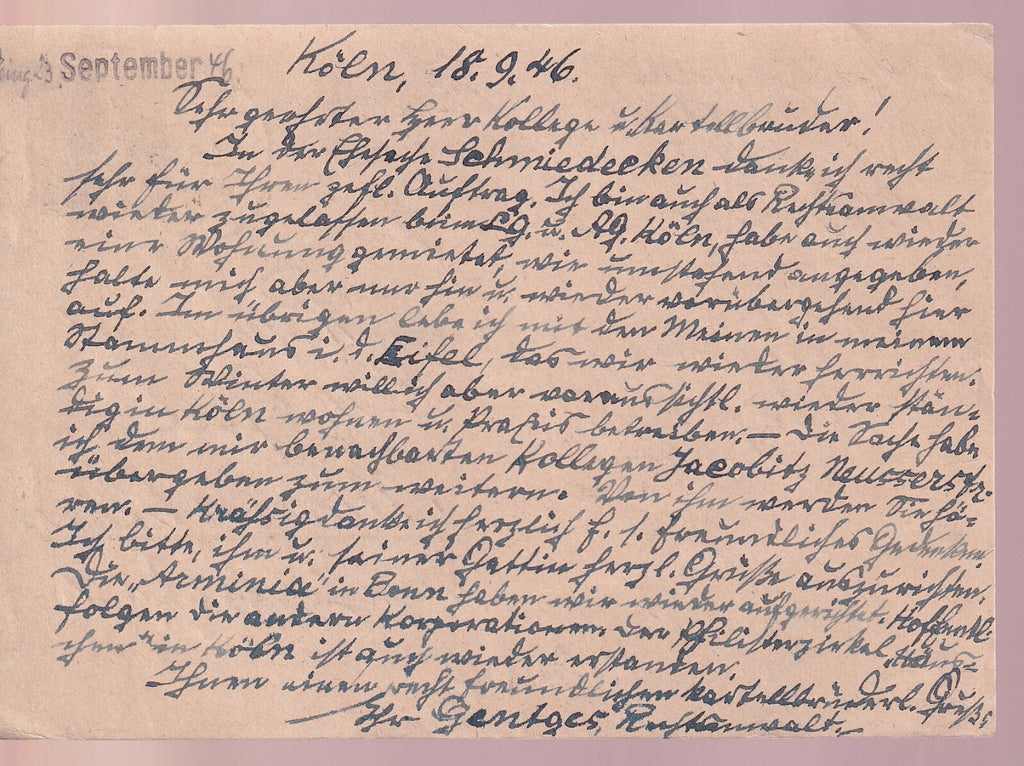 Eing. 23. September 46.
Köln, 18. 9. 46.
Sehr geehrter Herr Kollege u. Kartellbruder!
In der Ehesache Schmiedecken danke ich recht
sehr für Ihren gefl. Auftrag. Ich bin auch als Rechtsanwalt
wieder zugelassen beim LG. u. AG. Köln, habe auch wieder
eine Wohnung gemietet, wie umstehend angegeben,
halte mich aber nur hin u. wieder vorübergehend hier
auf. Im übrigen lebe ich mit den Meinen in meinem
Stammhaus i. d. Eifel, das wir wieder herrichten.
Zum Winter will ich aber voraussichtl. wieder stän-
dig in Köln wohnen u. Praxis betreiben. — Die Sache habe
ich dem mir benachbarten Kollegen Jacobitz Neusserstr.
übergeben zum weitern. Von ihm werden Sie hö-
ren. — Krähsig danke ich herzlich f. s. freundliches Gedenken.
Ich bitte, ihm u. seiner Gattin herzl. Grüße auszurichten.
Die „Arminia" in Bonn haben wir wieder aufgerichtet. Hoffentl.
folgen die andern Korporationen. Der Philisterzirkel „Häus-
chen" in Köln ist auch wieder erstanden.
Ihnen einen recht freundlichen kartellbrüderl. Gruß!
Ihr Gentges, Rechtsanwalt.